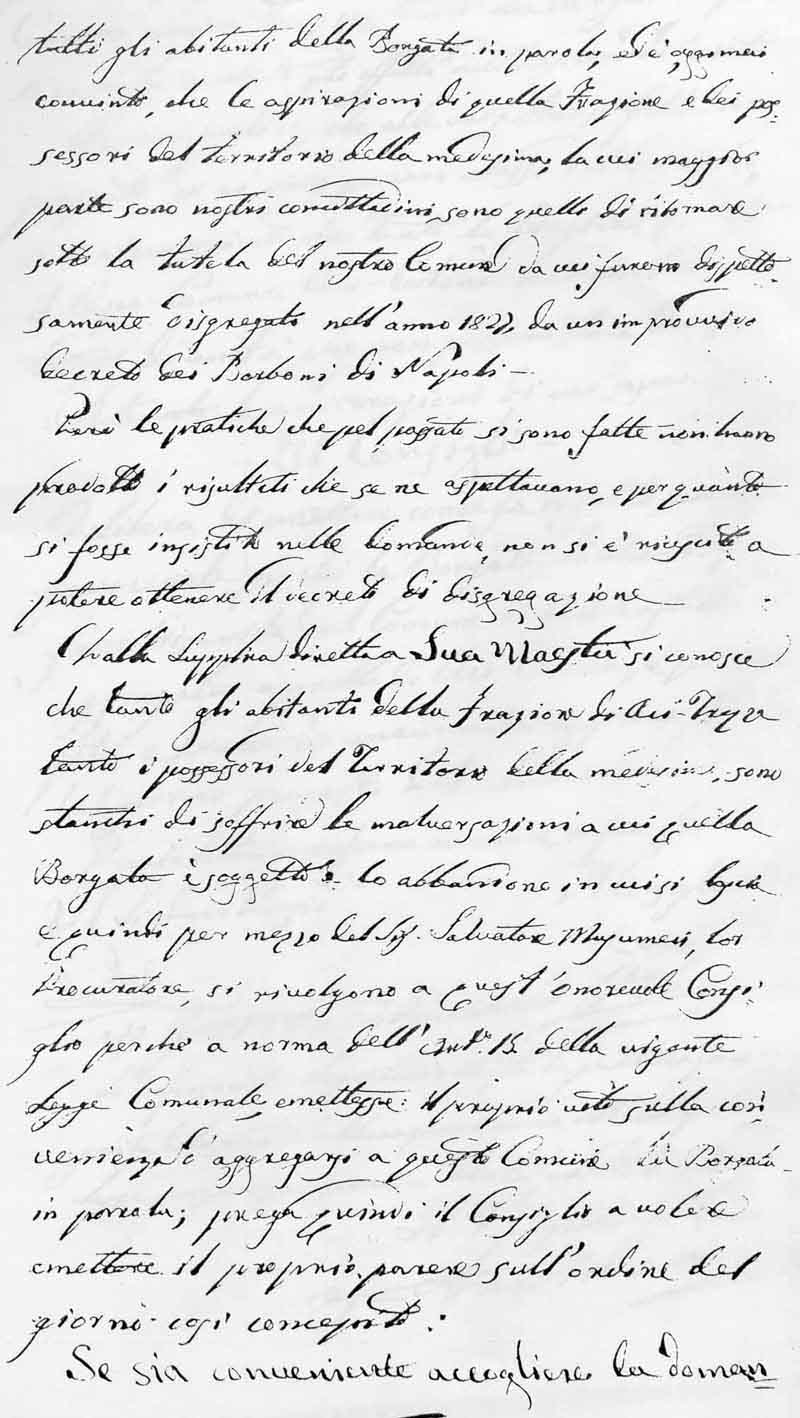 tutti gli abitanti della Borgata in parola, ed è oggimai
convinto, che le aspirazioni di quella Frazione e dei pos=
sessori del territorio della medesima, la cui maggior
parte sono nostri concittadini, sono quelle di ritornare
sotto la tutela del nostro Comune da cui furono dispetto
samente disgregati nell'anno 1827, da un improvviso
decreto dei Borboni di Napoli —
Però le pratiche che pel passato si sono fatte non hanno
prodotto i risultati che se ne aspettavano, e per quanto
si fosse insistito nelle domande, non si è riuscito a
potere ottenere il decreto di disgregazione —
Dalla Supplica diretta a Sua Maestà si conosce
che tanto gli abitanti della Frazione di Aci-Trezza
tanto i possessori del Territorio della medesima, sono
stanchi di soffrire le malversazioni a cui quella
Borgata è soggetta lo abbandono in cui si
e quindi per mezzo del Sig. Salvatore Musumeci, lor
Procuratore, si rivolgono a quest'onorevole Consi=
glio perché a norma dell'Art.º 15 della vigente
Legge Comunale, emettesse il proprio voto sulla con
venienza d'aggregarsi a questo Comune la Borgata
in parola; prega quindi il Consiglio a volere
emettere il proprio parere sull'ordine del
giorno così concepito:
Se sia conveniente accogliere la doman=